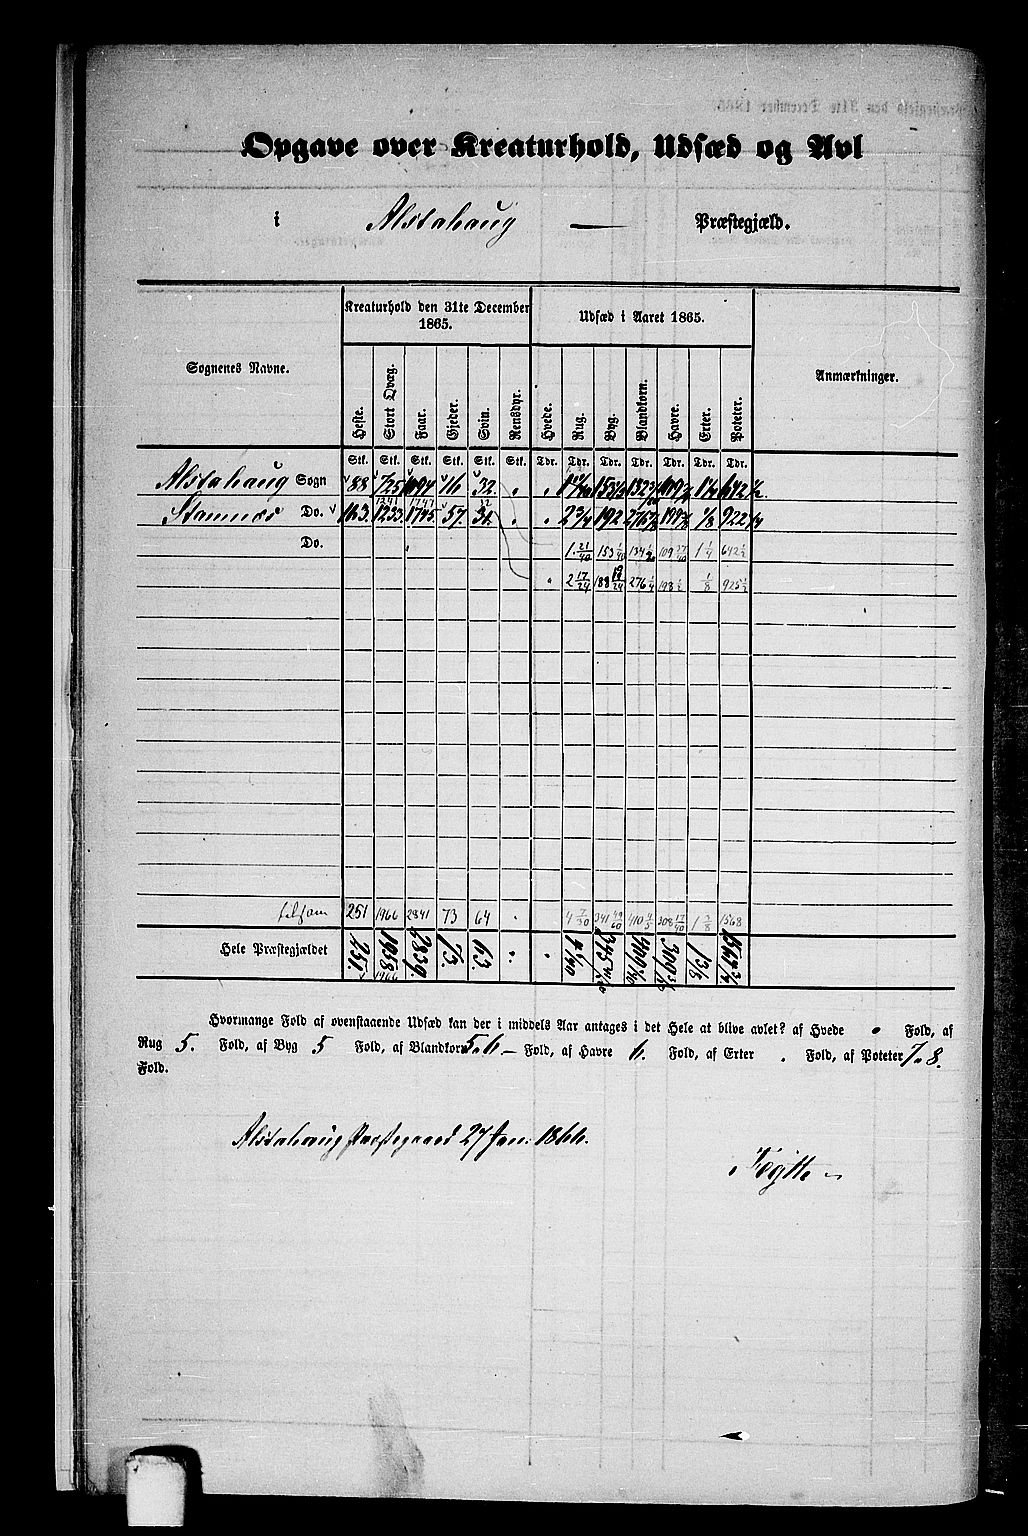 Opgave over Kreaturhold, Udsæd og Avl
i Alstahaug — Præstegjæld.
Sognenes Navne.
Kreaturhold den 31te December 1865.
Udsæd i Aaret 1865.
Anmærkninger.
Heste. Stort Qvæg. Faar. Gjeder. Svin. Rensdyr. Hvede. Rug. Byg. Blandkorn. Havre. Erter. Poteter.
Stk. Stk. Stk. Stk. Stk. Stk. Tdr. Tdr. Tdr. Tdr. Tdr. Tdr. Tdr.
Alstahaug Sogn 88 725 1094 16 32 642 1/2
1241 1747
Stamnes Do. 163. 1233. 1745 57. 31. 2 3/4 192 1/8 922 1/4
Do. 1 21/40 153 1/40 134 1/20 109 37/40 1 1/4 642 1/2
2 17/24 188 19/24 276 1/4 198 1/2 1/8 925 1/2
tilsam 251 1966 2841 73 64 4 7/30 341 49/60 410 4/5 308 17/40 1 3/8 1568
Hele Præstegjældet 251. 1958 2839. 73. 63. 1 3/8
1966
Hvormange Fold af ovenstaaende Udsæd kan der i middels Aar antages i det Hele at blive avlet? af Hvede Fold, af
Rug 5. Fold, af Byg 5 Fold, af Blandkorn 5 à 6 — Fold, af Havre 6. Fold, af Erter . Fold, af Poteter 7 à 8.
Fold.
Alstahaug Præstegaard 27 Jan. 1866.